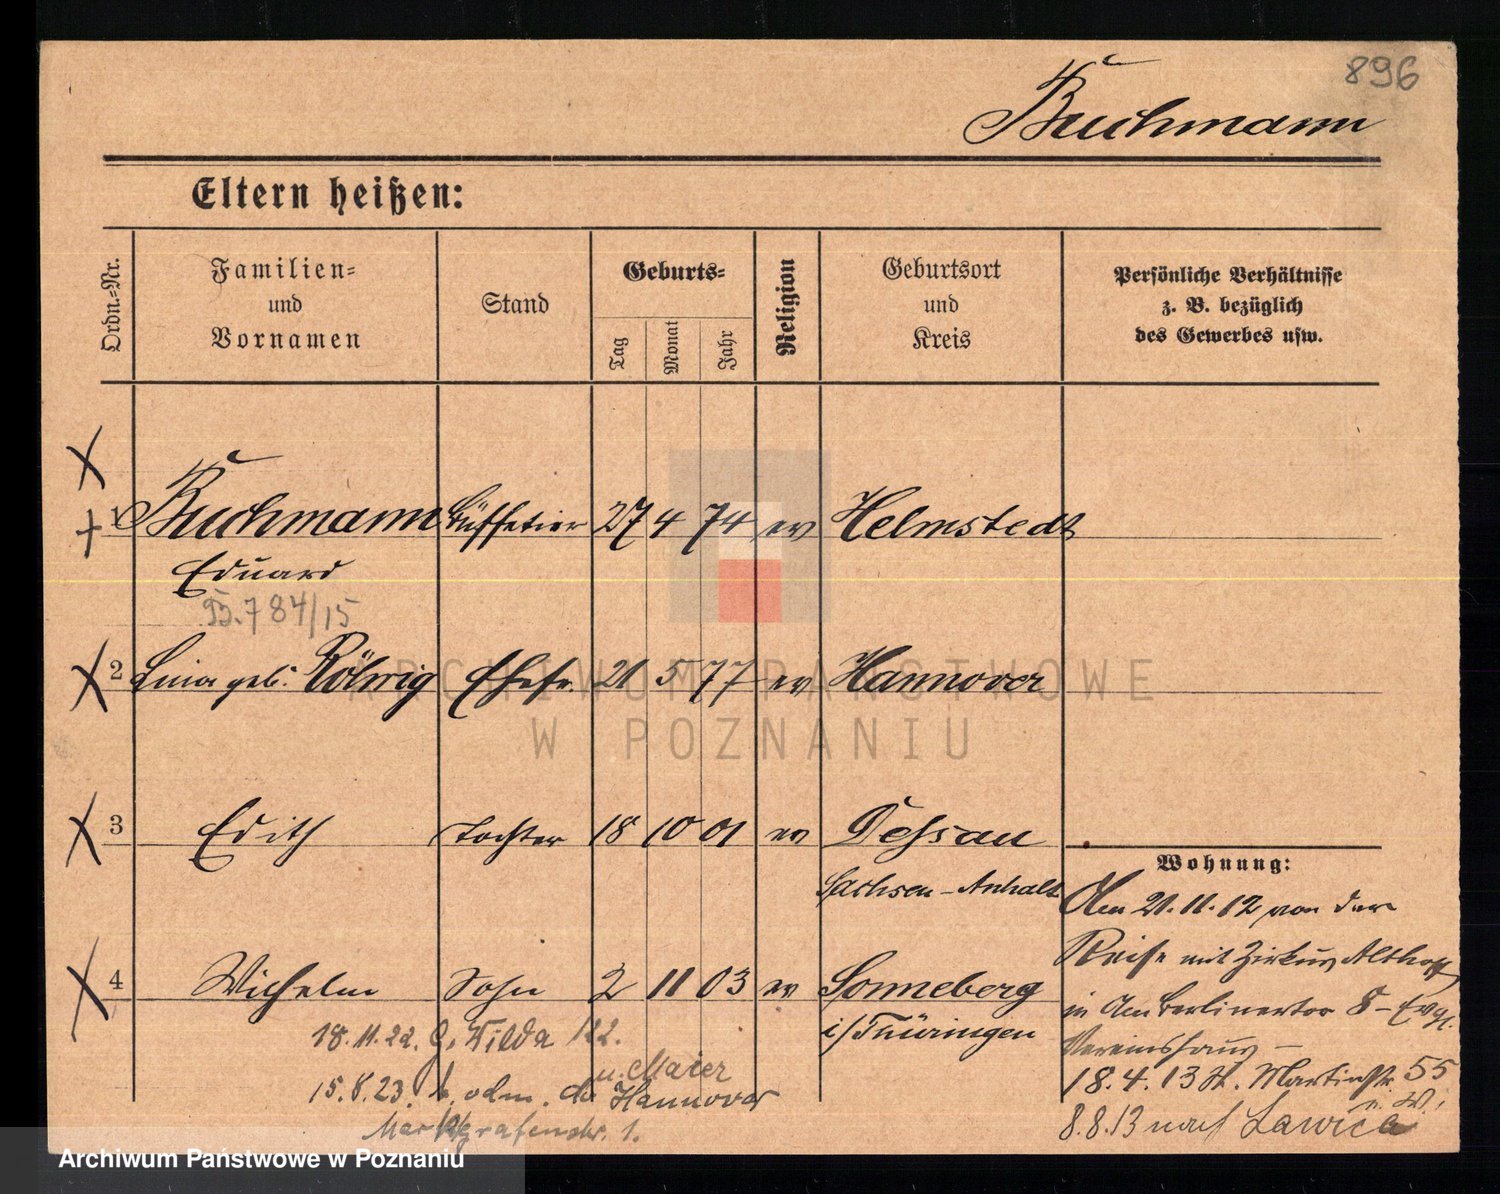 896
Buchmann
Eltern heißen:
Ordn.-Nr.
Familien-
und
Vornamen
Stand
Geburts-
Tag
Monat
Jahr
Religion
Geburtsort
und
Kreis
Persönliche Verhältnisse
z. B. bezüglich
des Gewerbes usw.
1 Buchmann Büffetier 27 4 74 ev Helmstedt
Eduard
B. 784/15
2 Lina geb. Röhrig Ehefr. 21 5 77 ev Hannover
3 Edith Tochter 18 10 01 ev Dessau
Sachsen-Anhalt
4 Wilhelm Sohn 2 11 03 ev Sonneberg
i/Thüringen
18.11.22. Wilda 122.
u. Maier
15.8.23. Hannover
Markgrafenstr. 1.
Wohnung:
Am 21.11.12 von der
Reise mit Zirkus Althoff
in Am Berlinertor 8 - Evgl.
Vereinshaus -
18.4.13 St. Martinstr. 55
8.8.13 nach Lawica
ARCHIWUM PAŃSTWOWE
W POZNANIU
Archiwum Państwowe w Poznaniu